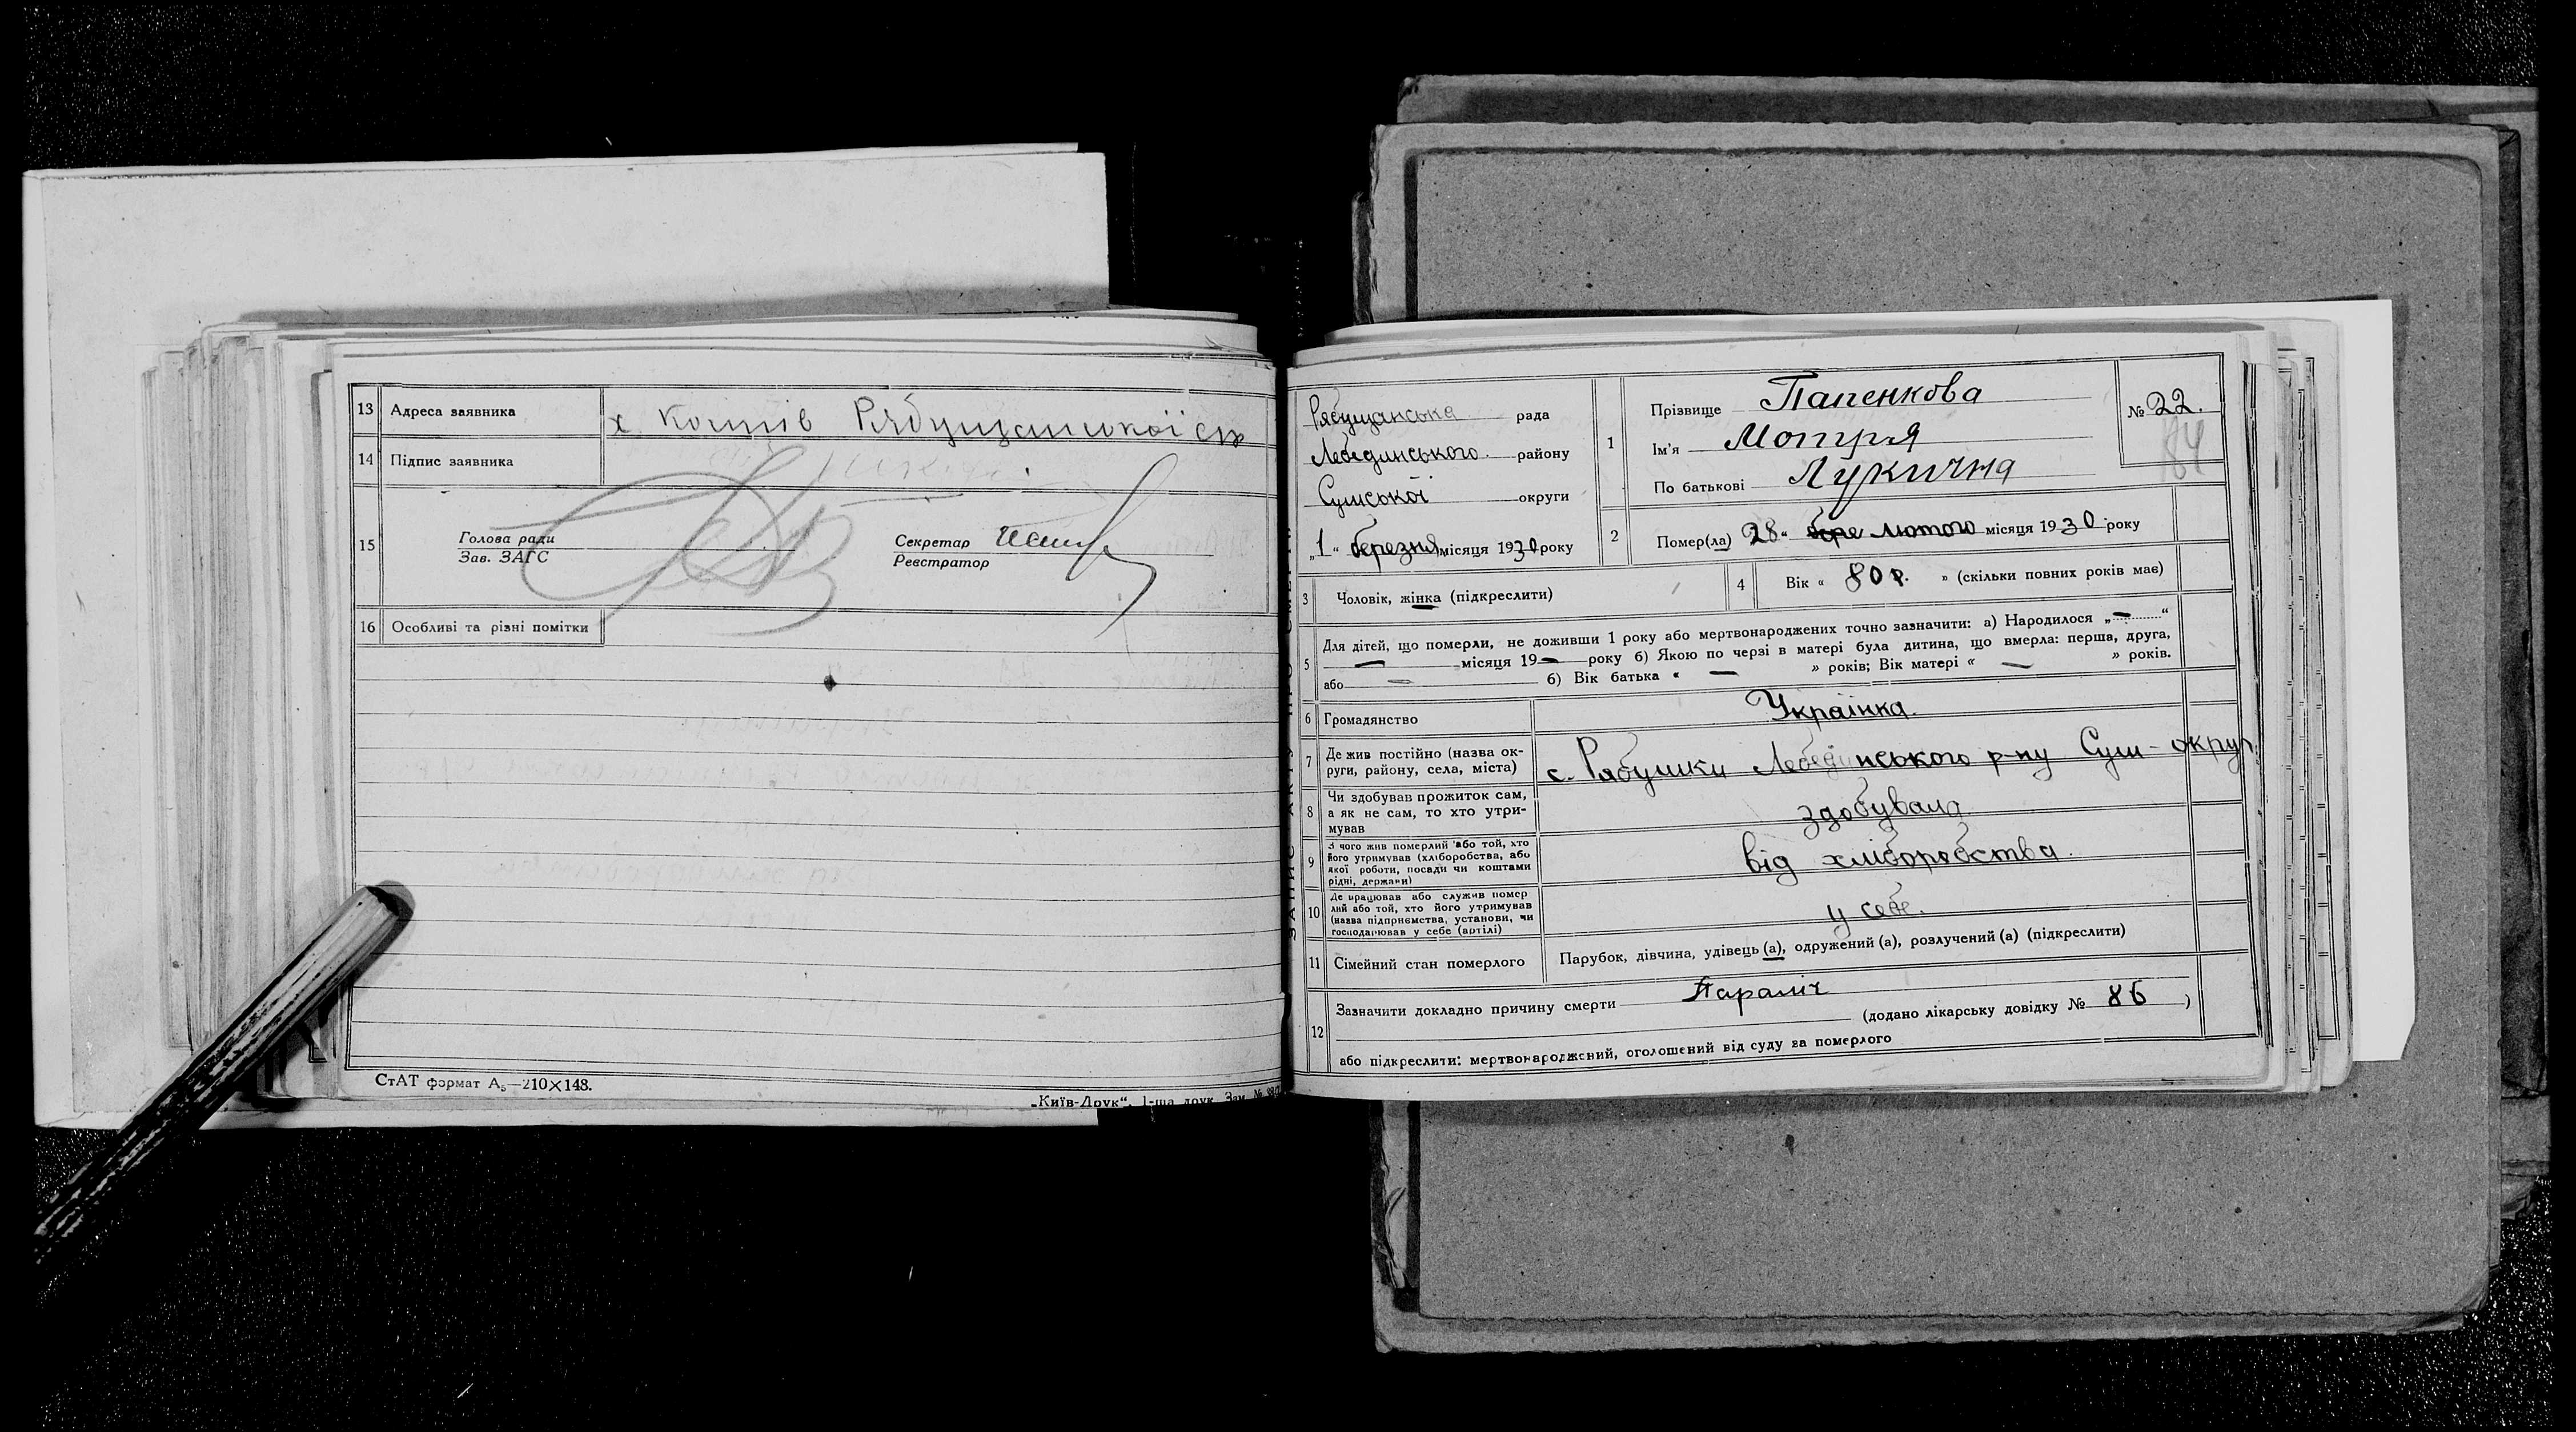 13 Адреса заявника х. Кошів Рябущанської с/р
14 Підпис заявника
15 Голова ради
Зав. ЗАГС
Секретар
Реєстратор
16 Особливі та різні помітки
СтАТ формат А₅—210×148.
„Київ-Друк“. 1-ша друк. Зам. №
Рябущанська рада
Лебединського району
Сумської округи
„1“ березня місяця 1930 року
1 Прізвище Папенкова
Ім'я Мотря
По батькові Лукична
№ 22.
84
2 Помер(ла) 28 „ бере лютого місяця 1930 року
3 Чоловік, жінка (підкреслити)
4 Вік « 80 р. » (скільки повних років має)
5 Для дітей, що померли, не доживши 1 року або мертвонароджених точно зазначити: а) Народилося „—“
— місяця 19— року б) Якою по черзі в матері була дитина, що вмерла: перша, друга,
або — б) Вік батька « — » років; Вік матері « — » років.
6 Громадянство Українка.
7 Де жив постійно (назва ок-
руги, району, села, міста) с. Рябушки Лебединського р-ну Сум- округ.
8 Чи здобував прожиток сам,
а як не сам, то хто утри-
мував здобувала
9 З чого жив померлий або той, хто
його утримував (хліборобства, або
якої роботи, посади чи коштами
рідні, держави) від хліборобства.
10 Де працював або служив помер
лий або той, хто його утримував
(назва підприємства, установи, чи
господарював у себе (артілі) у себе.
11 Сімейний стан померлого Парубок, дівчина, удівець (а), одружений (а), розлучений (а) (підкреслити)
12 Зазначити докладно причину смерти Параліч
(додано лікарську довідку № 86 )
або підкреслити: мертвонароджений, оголошений від суду за померлого